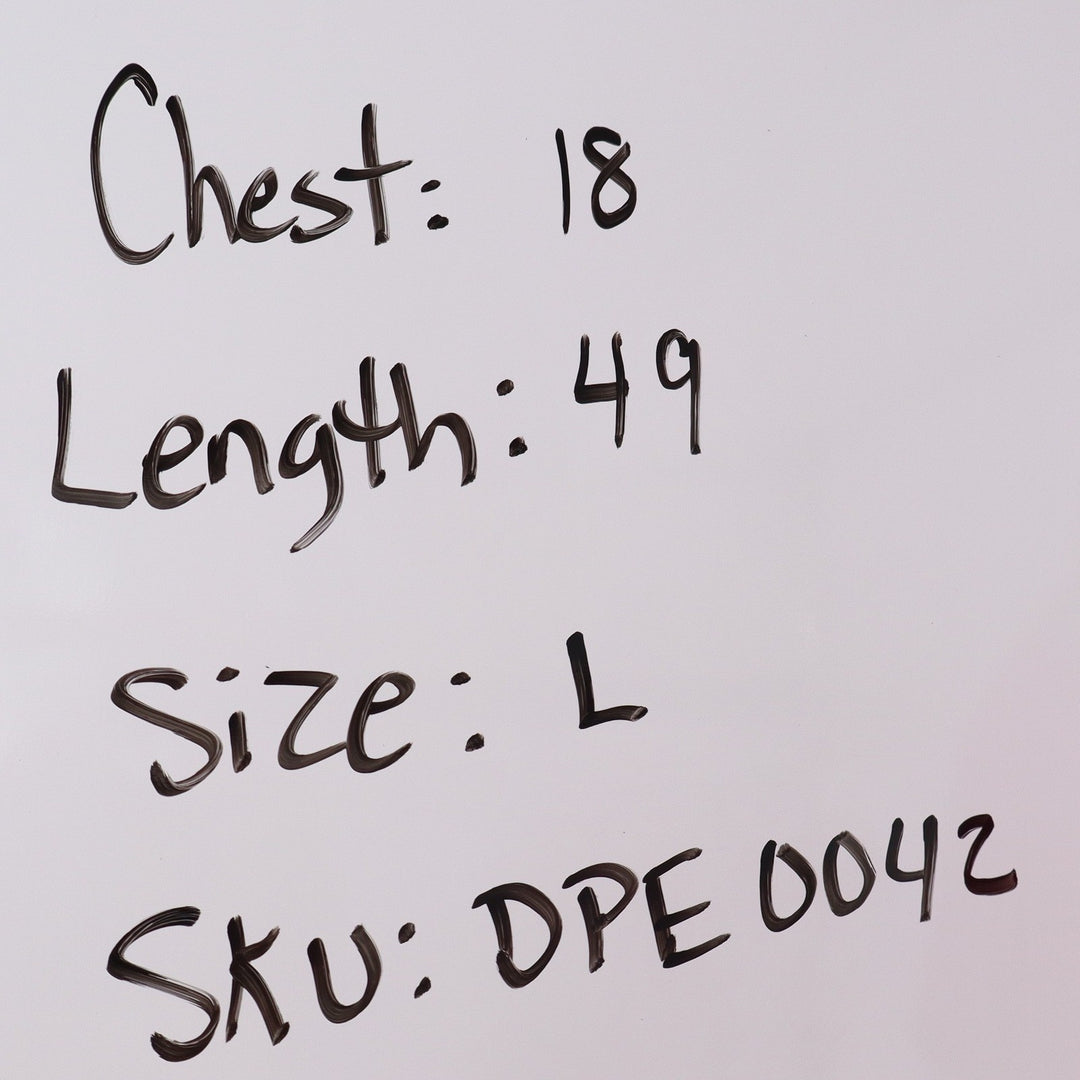 Chest: 18
Length: 49
Size: L
SKU: DPE 0042